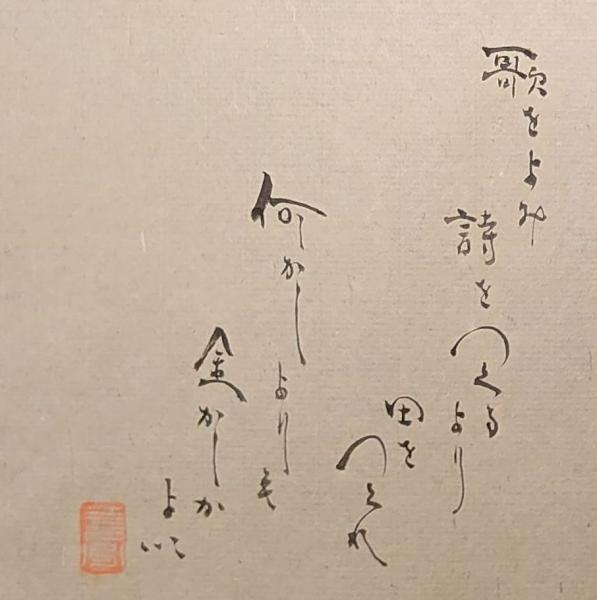 歌をよみ
詩をつくる
より
田を
つくれ
何かし
よりも
金かしか
よい